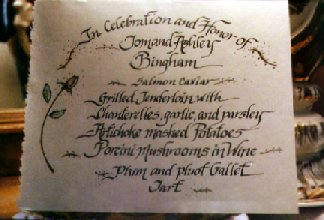 In Celebration and Honor of
Tom and Ashley
Bingham
Salmon Caviar
Grilled Tenderloin with
Chanterelles, garlic, and parsley
Artichoke mashed Potatoes
Porcini Mushrooms in Wine
Plum and pluot Gallet
Tart